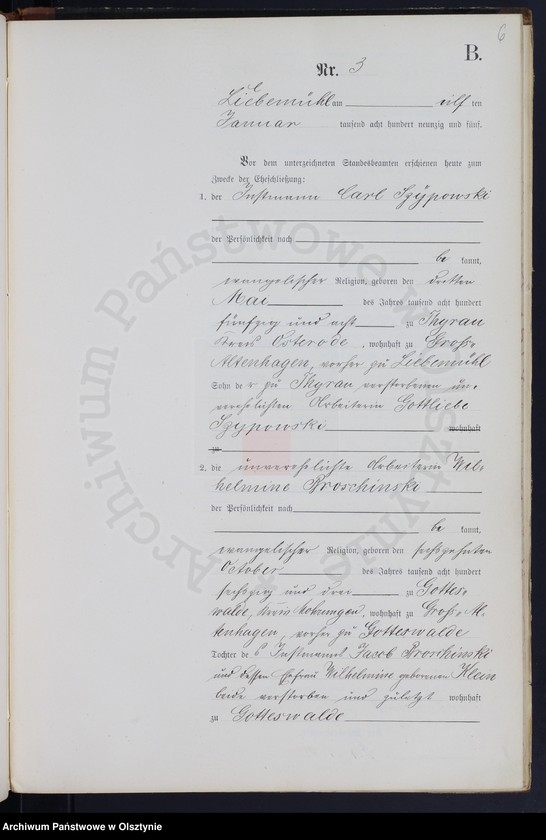 6
B.
Nr. 3
Liebemühl am eilf ten
Januar tausend acht hundert neunzig und fünf.
Vor dem unterzeichneten Standesbeamten erschienen heute zum
Zwecke der Eheschließung:
1. der Instmann Carl Szÿpowski
der Persönlichkeit nach
be kannt,
evangelischer Religion, geboren den dritten
Mai des Jahres tausend acht hundert
fünfzig und acht zu Thyrau
Kreis Osterode, wohnhaft zu Groß-
Altenhagen, vorher zu Liebemühl
Sohn der zu Thyrau verstorbenen un-
verehelichten Arbeiterin Gottliebe
Szÿpowski wohnhaft
zu
2. die unverehelichte Arbeiterin Wil-
helmine Broschinski
der Persönlichkeit nach
be kannt,
evangelischer Religion, geboren den sechszehnten
October des Jahres tausend acht hundert
sechszig und drei zu Gottes-
walde, Kreis Mohrungen, wohnhaft zu Groß-Al-
tenhagen, vorher zu Gotteswalde
Tochter des Instmanns Jacob Broschinski
und dessen Ehefrau Wilhelmine geborenen Klein
beide verstorben und zuletzt wohnhaft
zu Gotteswalde
Archiwum Państwowe w Olsztynie
Archiwum Państwowe w Olsztynie